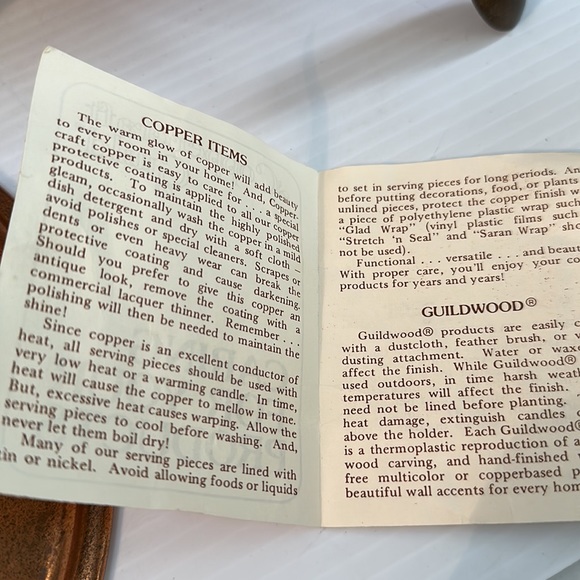 COPPER ITEMS
The warm glow of copper will add beauty
to every room in your home! And, Copper-
craft copper is easy to care for . . . a special
protective coating is applied to all our copper
products. To maintain the highly polished
gleam, occasionally wash the copper in a mild
dish detergent and dry with a soft cloth —
avoid polishes or special cleaners. Scrapes or
dents or even heavy wear can break the
protective coating and cause darkening.
Should you prefer to give this copper an
antique look, remove the coating with a
commercial lacquer thinner. Remember . . .
polishing will then be needed to maintain the
shine!
Since copper is an excellent conductor of
heat, all serving pieces should be used with
very low heat or a warming candle. In time,
heat will cause the copper to mellow in tone.
But, excessive heat causes warping. Allow the
serving pieces to cool before washing. And,
never let them boil dry!
Many of our serving pieces are lined with
tin or nickel. Avoid allowing foods or liquids
to set in serving pieces for long periods. An
before putting decorations, food, or plants
unlined pieces, protect the copper finish w
a piece of polyethylene plastic wrap such
"Glad Wrap" (vinyl plastic films such
"Stretch 'n Seal" and "Saran Wrap" sho
not be used).
Functional . . . versatile . . . and beau
With proper care, you'll enjoy your co
products for years and years!
GUILDWOOD®
Guildwood® products are easily c
with a dustcloth, feather brush, or v
dusting attachment. Water or wax
affect the finish. While Guildwood®
used outdoors, in time harsh weat
temperatures will affect the finish.
need not be lined before planting.
heat damage, extinguish candles
above the holder. Each Guildwood®
is a thermoplastic reproduction of a
wood carving, and hand-finished
free multicolor or copperbased p
beautiful wall accents for every hom